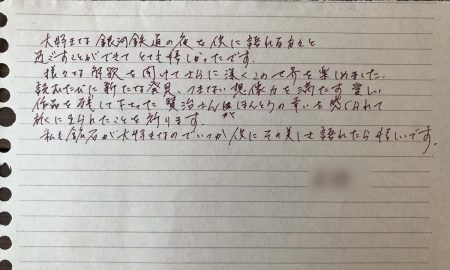 大好きな銀河鉄道の夜を共に語れる方々と
過ごすことができてとても嬉しかったです。
様々な解釈を聞けてさらに深くこの世界を楽しめました。
読むたびに新たな発見、つきない想像力を満たす美しい
作品を残して下さった賢治さんが ほんとうの幸いを感じられて
旅に出られたことを祈ります。
私も鉱石が大好きなのでいつか共にその美しさを語れたら嬉しいです。